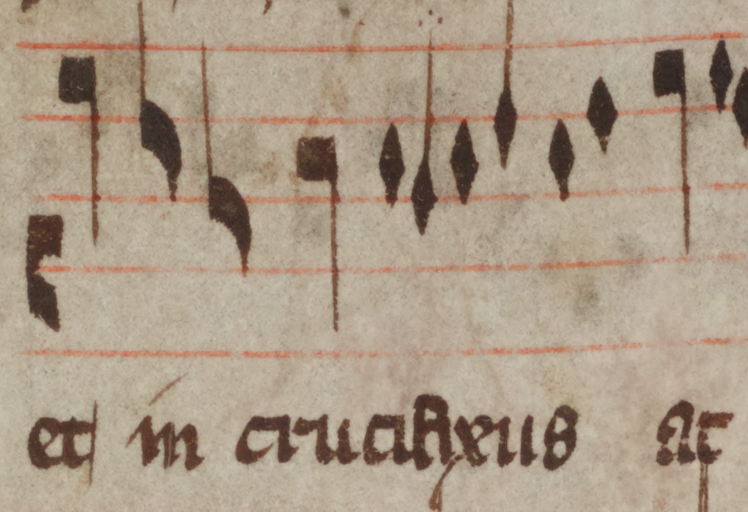 et in crucifixus At